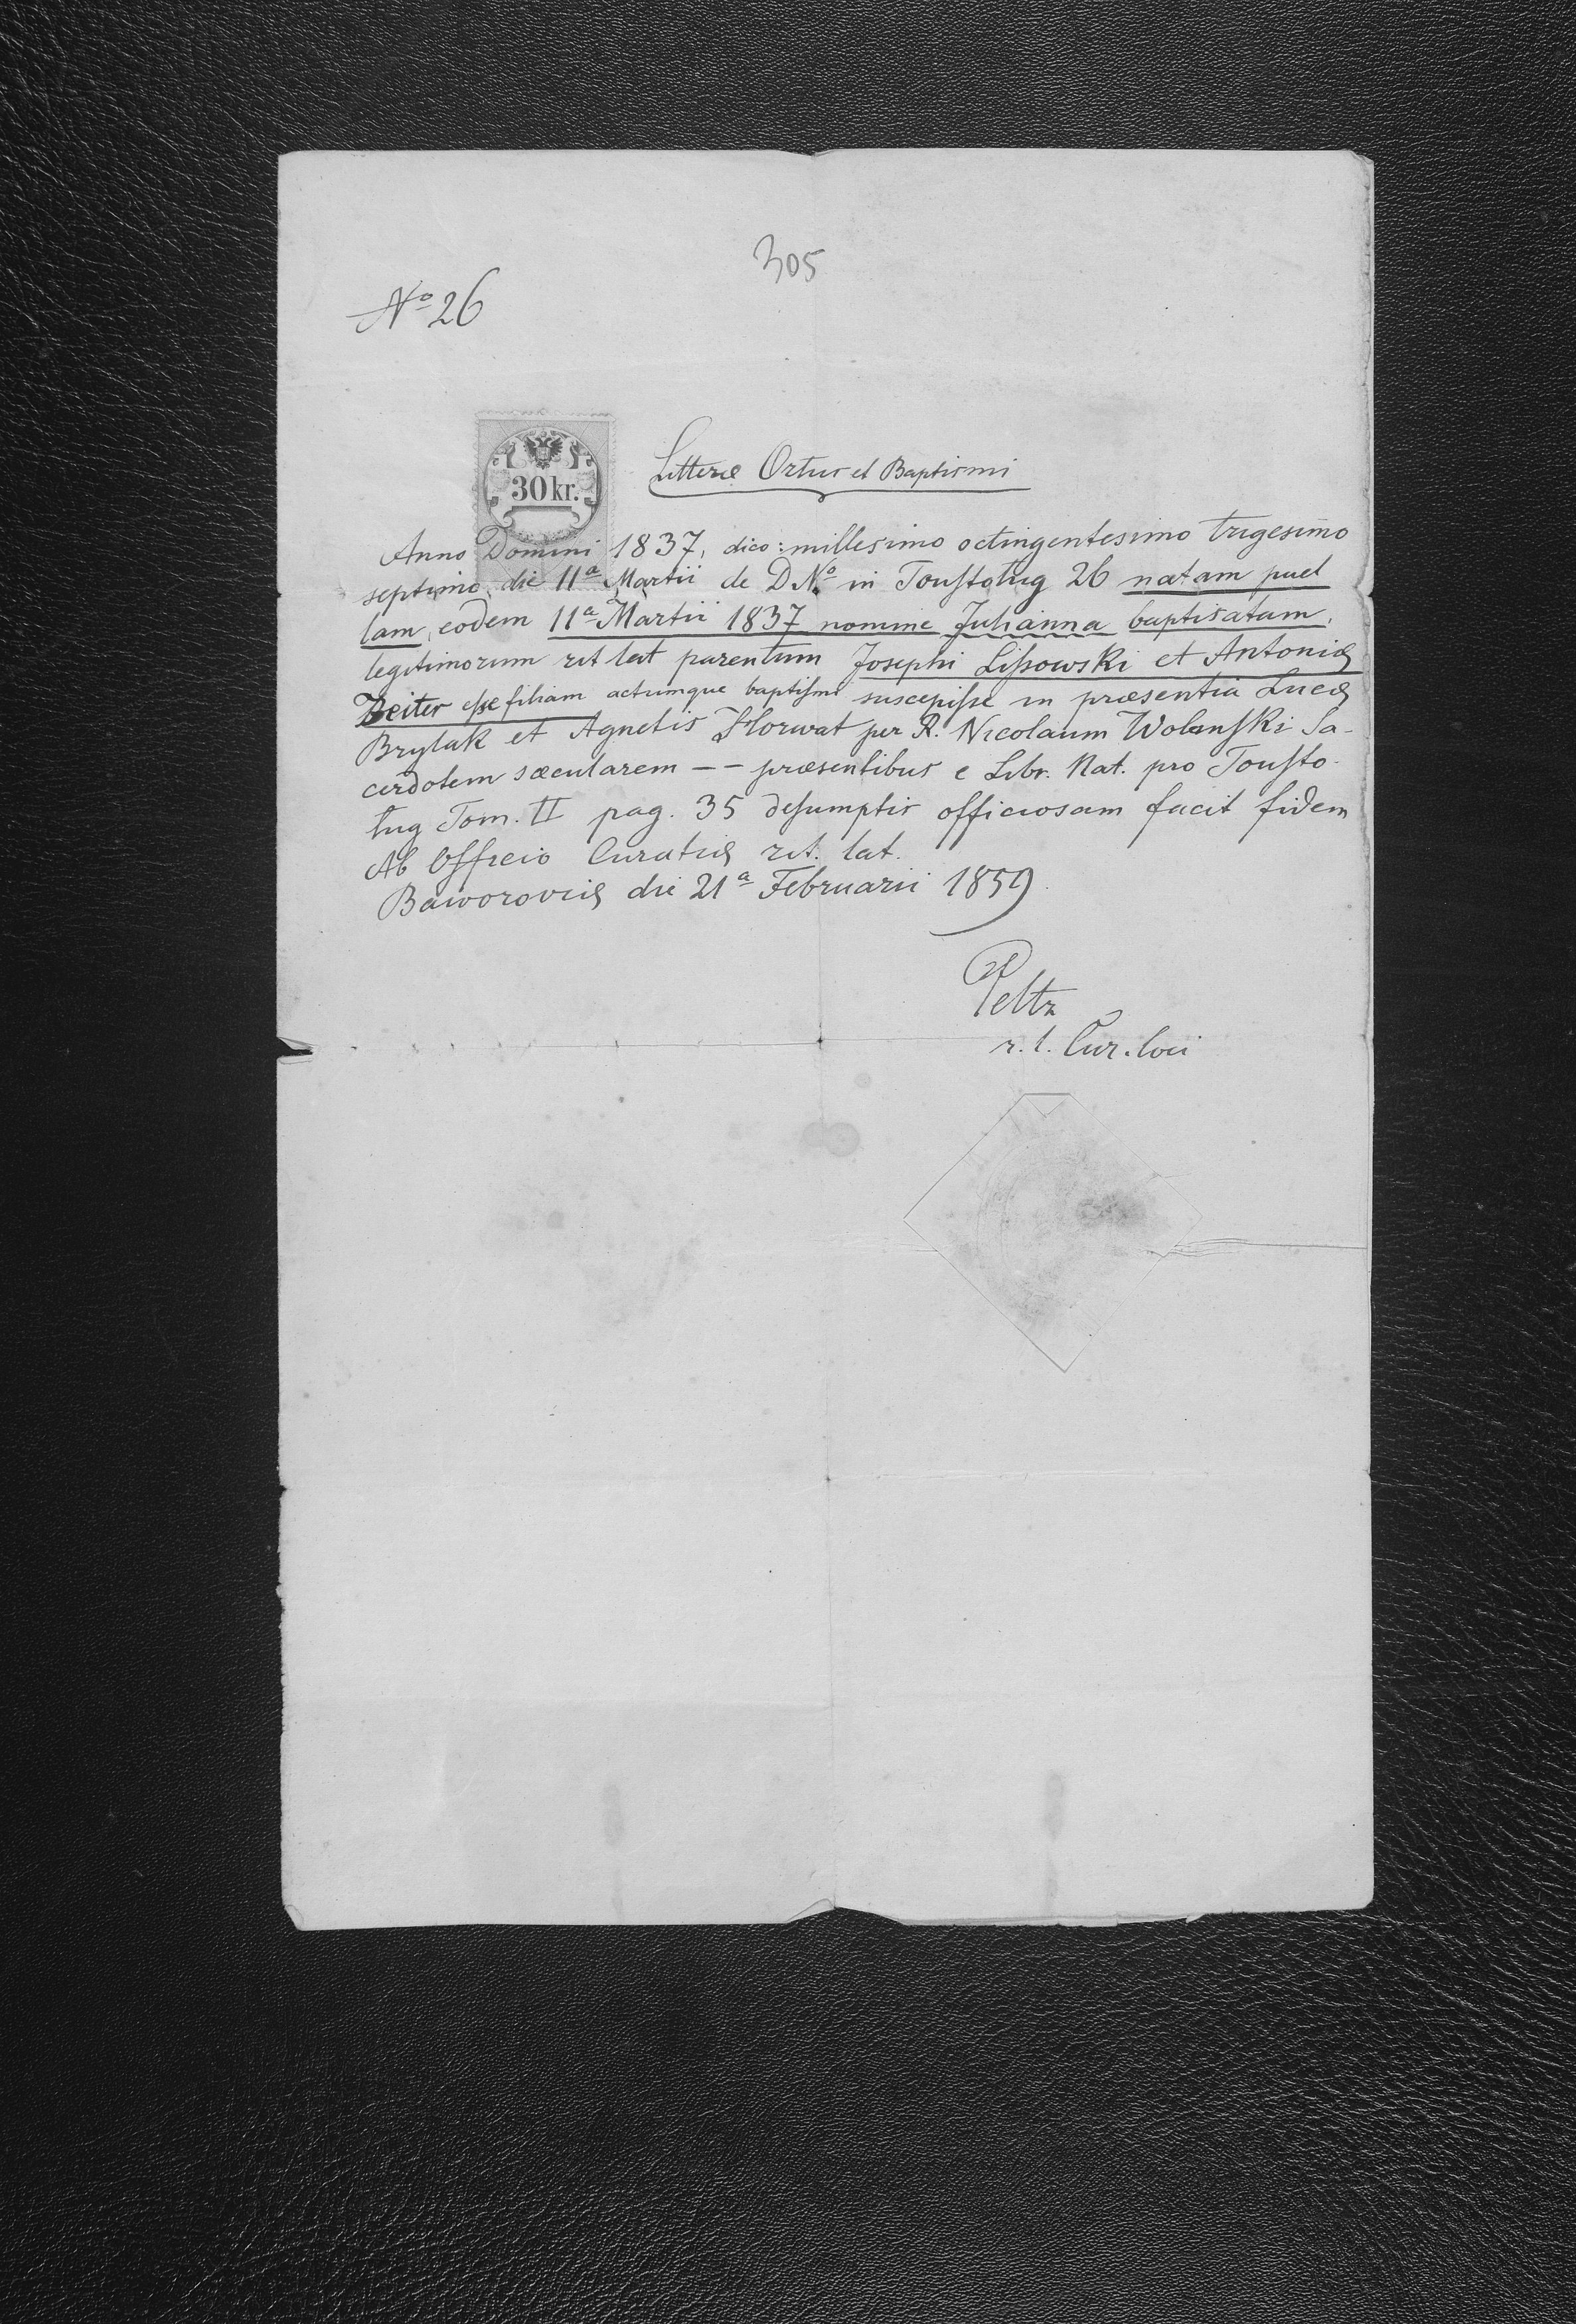 305
No 26
30 kr.
Litteræ Ortus et Baptismi
Anno Domini 1837, dico: millesimo octingentesimo trigesimo
septimo, die 11a Martii de D.No in Toustoług 26 natam puel
lam, eodem 11a Martii 1837 nomine Julianna baptisatam,
legitimorum rit lat parentum Josephi Lissowski et Antoniæ
Beiter esse filiam actumque baptismi suscepisse in præsentia Lucæ
Brylak et Agnetis Horwat per R. Nicolaum Wolanski Sa-
cerdotem sæcularem -- præsentibus e Libr. Nat. pro Tousto-
ług Tom. II pag. 35 desumptis officiosam facit fidem
Ab Officio Curatiæ rit. lat.
Baworoviæ die 21a Februarii 1859
Peltz
r. l. Cur. loci